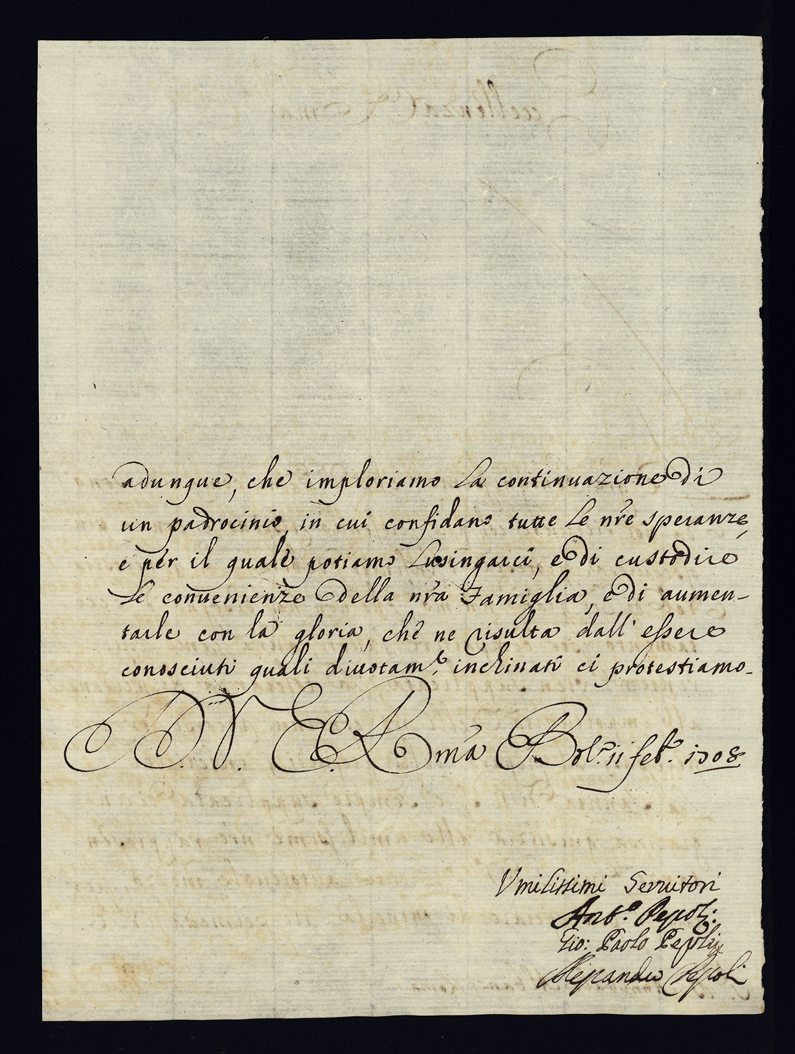 adunque, che imploriamo la continuazione di
un padrocinio, in cui confidano tutte le nr̃e speranze,
e per il quale potiamo lusingarci, e di custodire
le conuenienze della nr̃a Famiglia, e di aumen-
tarle con la gloria, che ne risulta dall' essere
conosciuti quali diuotam.te inchinati ci protestiamo.
D. V. E. Rma Bol.a 11 feb.o 1708
Vmilissimi Seruitori
Ant.o Pepoli:
Gio: Paolo Pepoli
Alessandro Pepoli